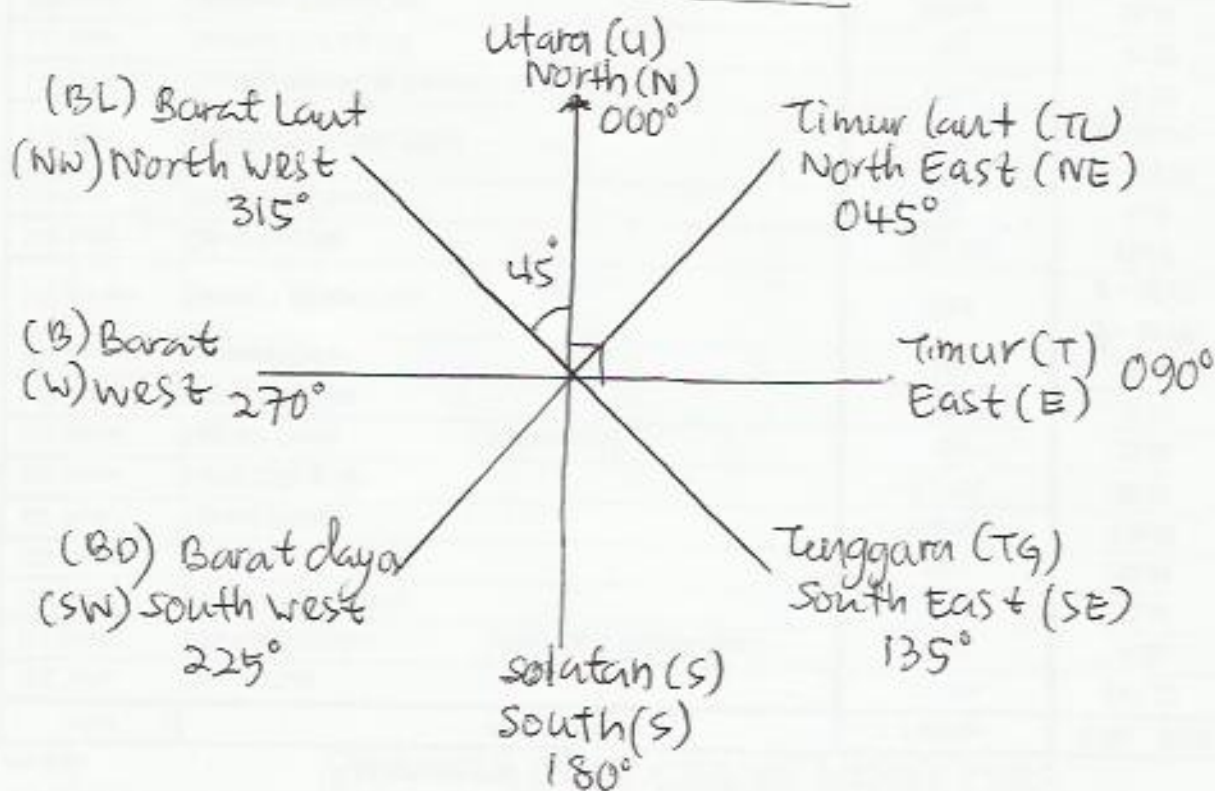 Utara (U)
North (N)
000°
(BL) Barat Laut
(NW) North west
315°
Timur laut (TL)
North East (NE)
045°
45°
(B) Barat
(W) west 270°
Timur (T)
East (E) 090°
(BD) Barat daya
(SW) South west
225°
Tenggara (TG)
South East (SE)
135°
Selatan (S)
South (S)
180°